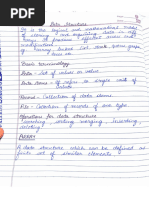 Data Structure
It is the logical and mathematical model
of storing and organizing data in diff
ways to provide effective access and
modification
array, linked list, stack, queue, graph
tree etc
Basic terminology
Data - Set of values or value
Data items - It refer as single unit of
values
Record - Collection of data items
File - Collection of records of one type
Operations for data structure
Searching, sorting, merging, inserting,
deleting
ARRAY
A data structure which can be defined as
finite set of similar elements